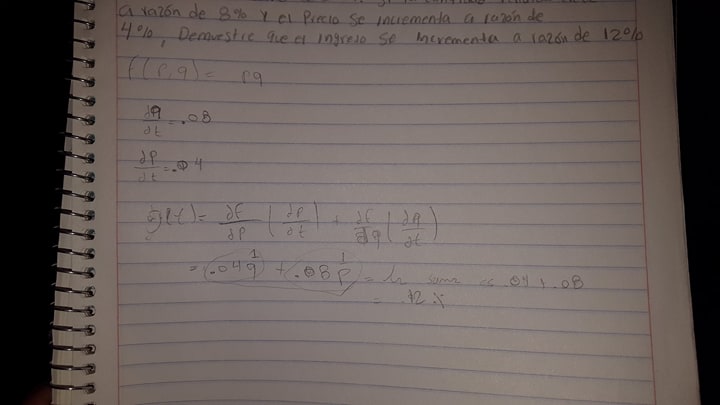 a razón de 8% y el Precio se incrementa a razón de
4%, Demuestre que el ingreso se incrementa a razón de 12%
f(p,q) = pq
dq/dt = .08
dp/dt = .04
g'(t) = ∂f/∂p (dp/dt) + ∂f/∂q (dq/dt)
= .04q¹ + .08p¹ = la suma es .04 + .08
= .12 %